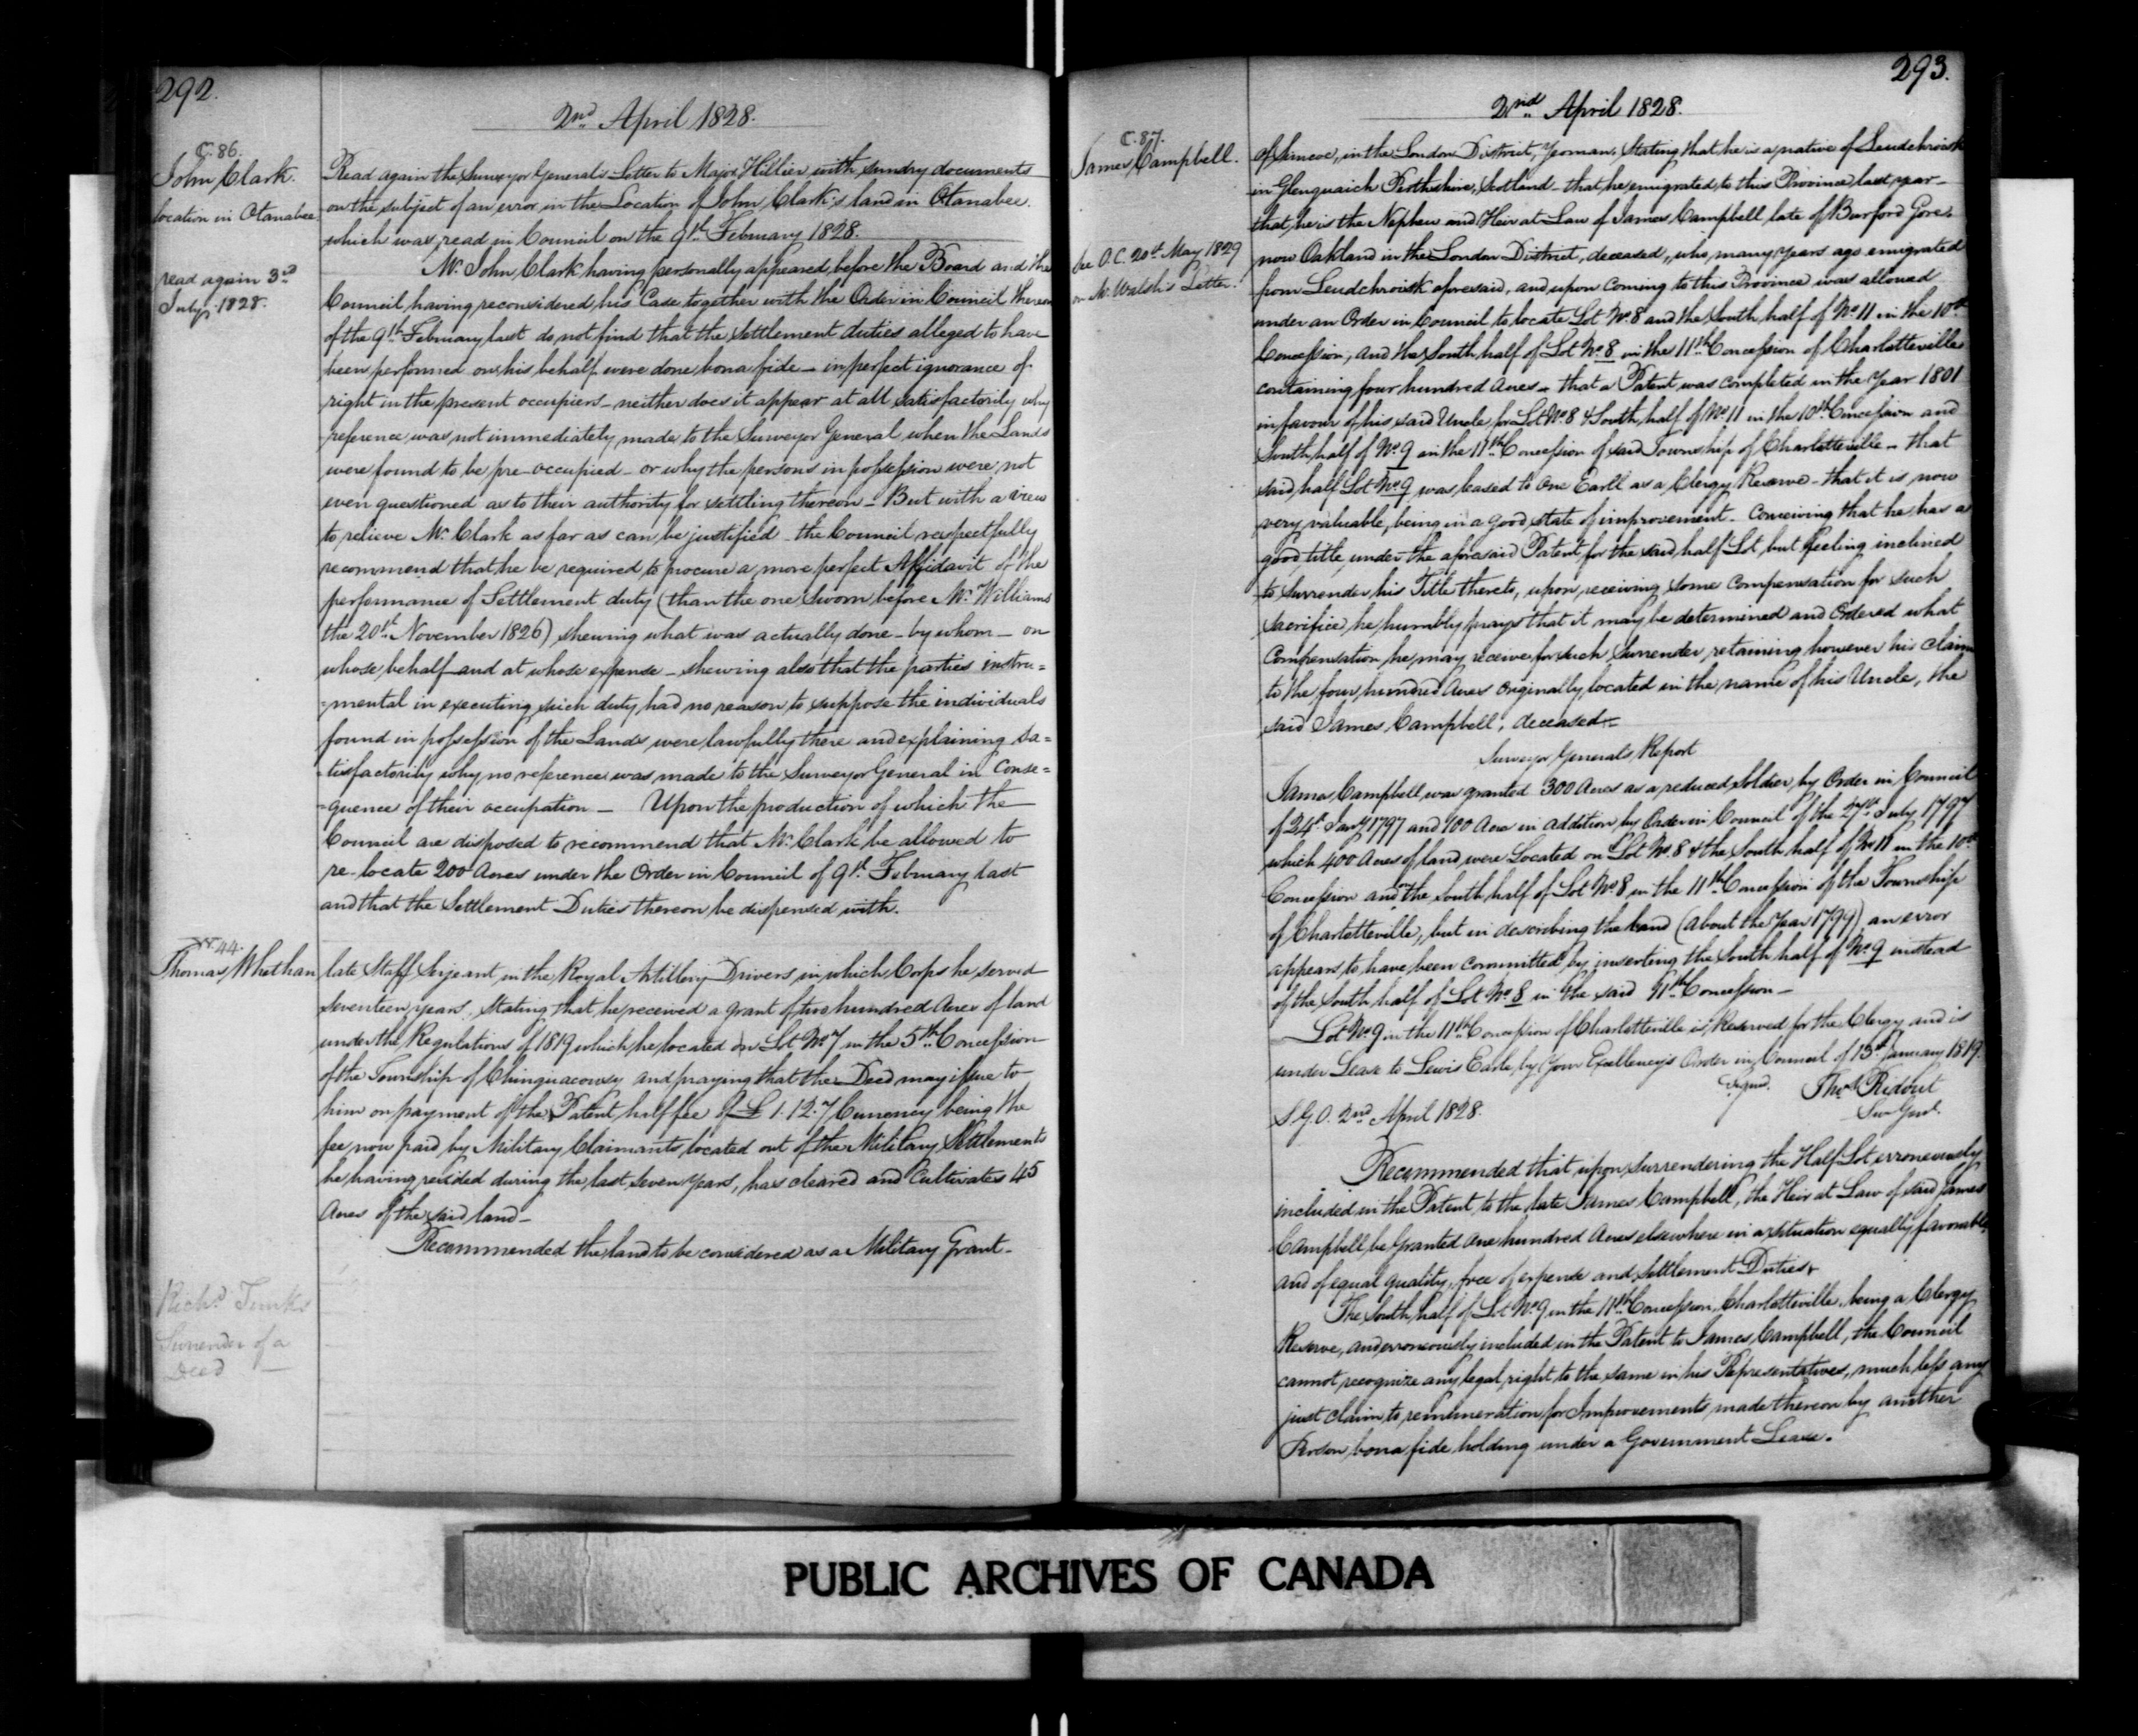 292.
2nd April 1828.
C. 86.
John Clark.
location in Otanabee
read again 3rd
July 1828.
Read again the Surveyor Generals Letter to Major Hillier with sundry documents
on the subject of an error in the Location of John Clark's land in Otanabee
which was read in Council on the 9th February 1828.
Mr. John Clark having personally appeared before the Board and the
Council having reconsidered his Case together with the Order in Council thereon
of the 9th February last do not find that the Settlement duties alleged to have
been performed on his behalf were done bona fide — in perfect ignorance of
right in the present occupiers — neither does it appear at all satisfactorily why
reference was not immediately made to the Surveyor General when the Lands
were found to be pre-occupied — or why the persons in possession were not
even questioned as to their authority for settling thereon — But with a view
to relieve Mr. Clark as far as can be justified — the Council respectfully
recommend that he be required to procure a more perfect Affidavit of the
performance of Settlement duty (than the one Sworn before Mr. Williams
the 20th November 1826) shewing what was actually done — by whom — on
whose behalf and at whose expense — shewing also that the parties instru=
=mental in executing such duty had no reason to suppose the individuals
found in possession of the Lands were lawfully there and explaining sa=
=tisfactorily why no reference was made to the Surveyor General in Conse=
=quence of their occupation — Upon the production of which the
Council are disposed to recommend that Mr. Clark be allowed to
re-locate 200 Acres under the Order in Council of 9th February last
and that the Settlement Duties thereon be dispensed with.
44.
Thomas Whethan
late Staff Serjeant in the Royal Artillery Drivers in which Corps he served
seventeen years, Stating that he received a grant of two hundred Acres of land
under the Regulations of 1819 which he located on Lot No 7 in the 5th Concession
of the Township of Chinguacousy and praying that the Deed may issue to
him on payment of the Patent half fee of £1.12.7 Currency being the
fee now paid by Military Claimants located out of the Military Settlements
he having resided during the last seven years, has cleared and Cultivates 45
Acres of the said land —
Recommended the land to be considered as a Military Grant —
Richd
Surrender of a
Deed
293.
2nd April 1828.
C. 87.
James Campbell.
See O.C. 20th May 1829
on Mr. Walsh's Letter.
of Simcoe, in the London District, Yeoman, Stating that he is a native of
in Glenquaich Perthshire, Scotland — that he emigrated to this Province last year —
that he is the Nephew and Heir at Law of James Campbell late of Burford Gore,
now Oakland in the London District, deceased, who many years ago emigrated
from aforesaid, and upon coming to this Province was allowed
under an Order in Council to locate Lot No. 8 and the South half of No. 11 in the 10th
Concession, and the South half of Lot No. 8 in the 11th Concession of Charlotteville
containing four hundred Acres — that a Patent was completed in the Year 1801
in favour of his said Uncle for Lot No. 8 & South half of No 11 in the 10th Concession and
South half of No. 9 in the 11th Concession of said Township of Charlotteville — that
said half Lot No. 9 was leased to one Earll as a Clergy Reserve — that it is now
very valuable, being in a good state of improvement — Conceiving that he has a
good title under the aforesaid Patent for the said half Lot, but feeling inclined
to Surrender his Title thereto, upon receiving some Compensation for such
sacrifice, he humbly prays that it may be determined and Ordered what
Compensation he may receive for such Surrender, retaining however his claim
to the four hundred Acres originally located in the name of his Uncle, the
said James Campbell, deceased —
Surveyor Generals Report
James Campbell was granted 300 Acres as a reduced Soldier by Order in Council
of 24th Jany 1797 and 100 Acres in addition by Order in Council of the 27th July 1797
which 400 Acres of land were Located on Lot No. 8 & the South half of No 11 in the 10th
Concession and on the South half of Lot No 8 in the 11th Concession of the Township
of Charlotteville, but in describing the land (about the Year 1799) an error
appears to have been committed by inserting the South half of No. 9 instead
of the South half of Lot No. 8 in the said 11th Concession —
Lot No. 9 in the 11th Concession of Charlotteville is Reserved for the Clergy and is
under Lease to Lewis Earle by Your Excellency's Order in Council of 13th January 1819.
Signed. Thos Ridout
Sur Genl.
S.G.O. 2nd April 1828.
Recommended that upon Surrendering the Half Lot erroneously
included in the Patent to the late James Campbell, the Heir at Law of said James
Campbell be Granted one hundred Acres elsewhere in a situation equally favorable
and of equal quality, free of expense and Settlement Duties.
The South half of Lot No. 9 in the 11th Concession, Charlotteville, being a Clergy
Reserve, and erroneously included in the Patent to James Campbell, the Council
cannot recognize any legal right to the same in his Representatives, much less any
just Claim to remuneration for Improvements made thereon by another
Person bona fide holding under a Government Lease.
PUBLIC ARCHIVES OF CANADA